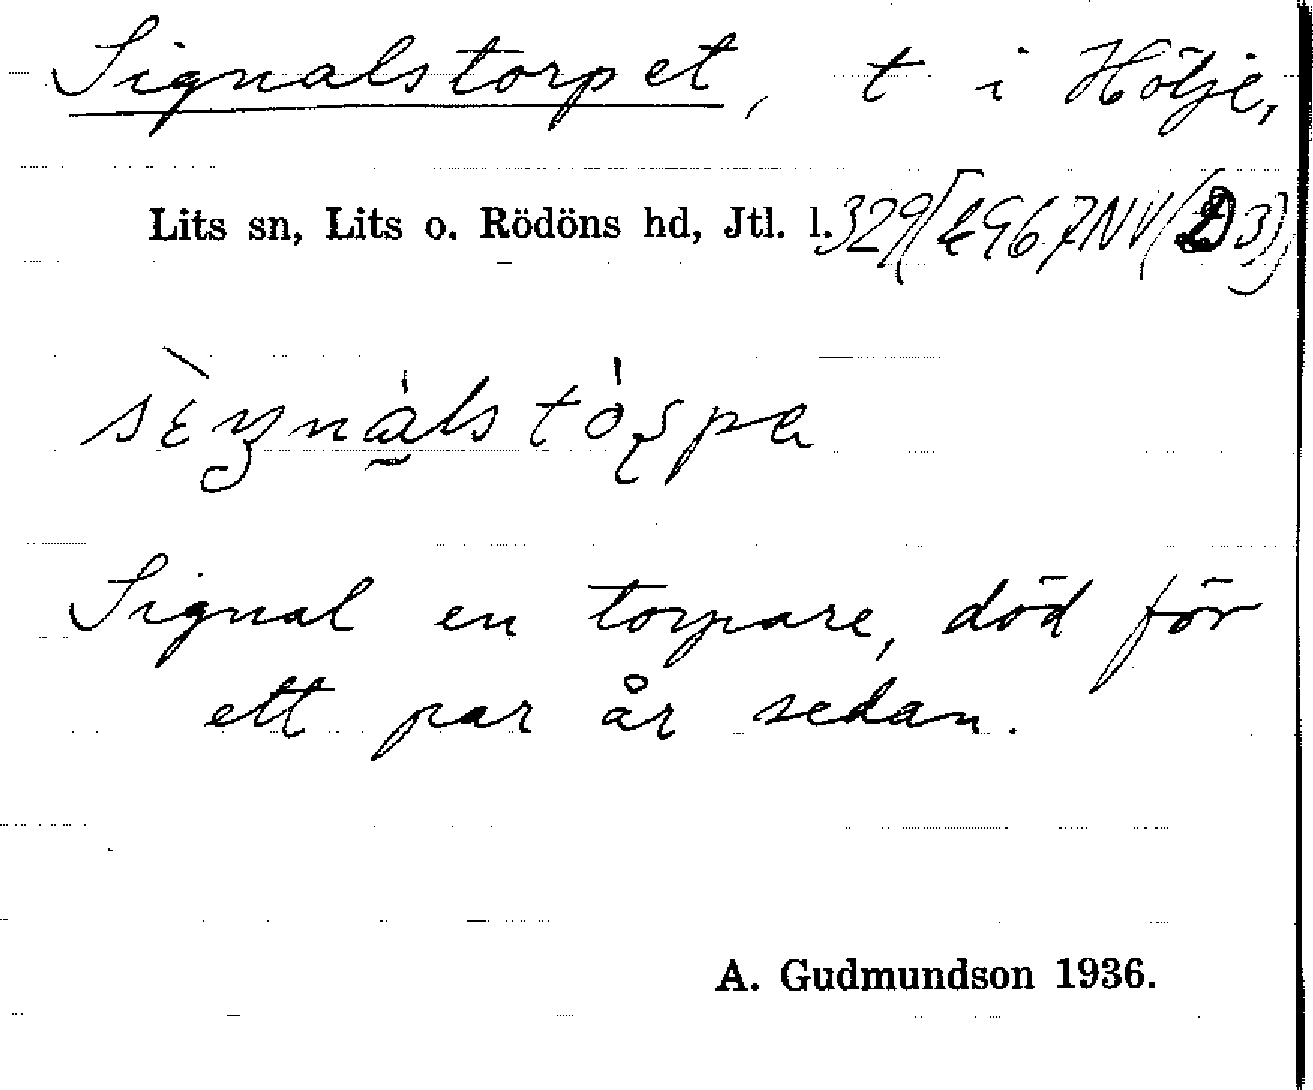 Signalstorpet, t i Hölje,
Lits sn, Lits o. Rödöns hd, Jtl. l. 329
Signal en torpare, död för
ett par år sedan.
A. Gudmundson 1936.